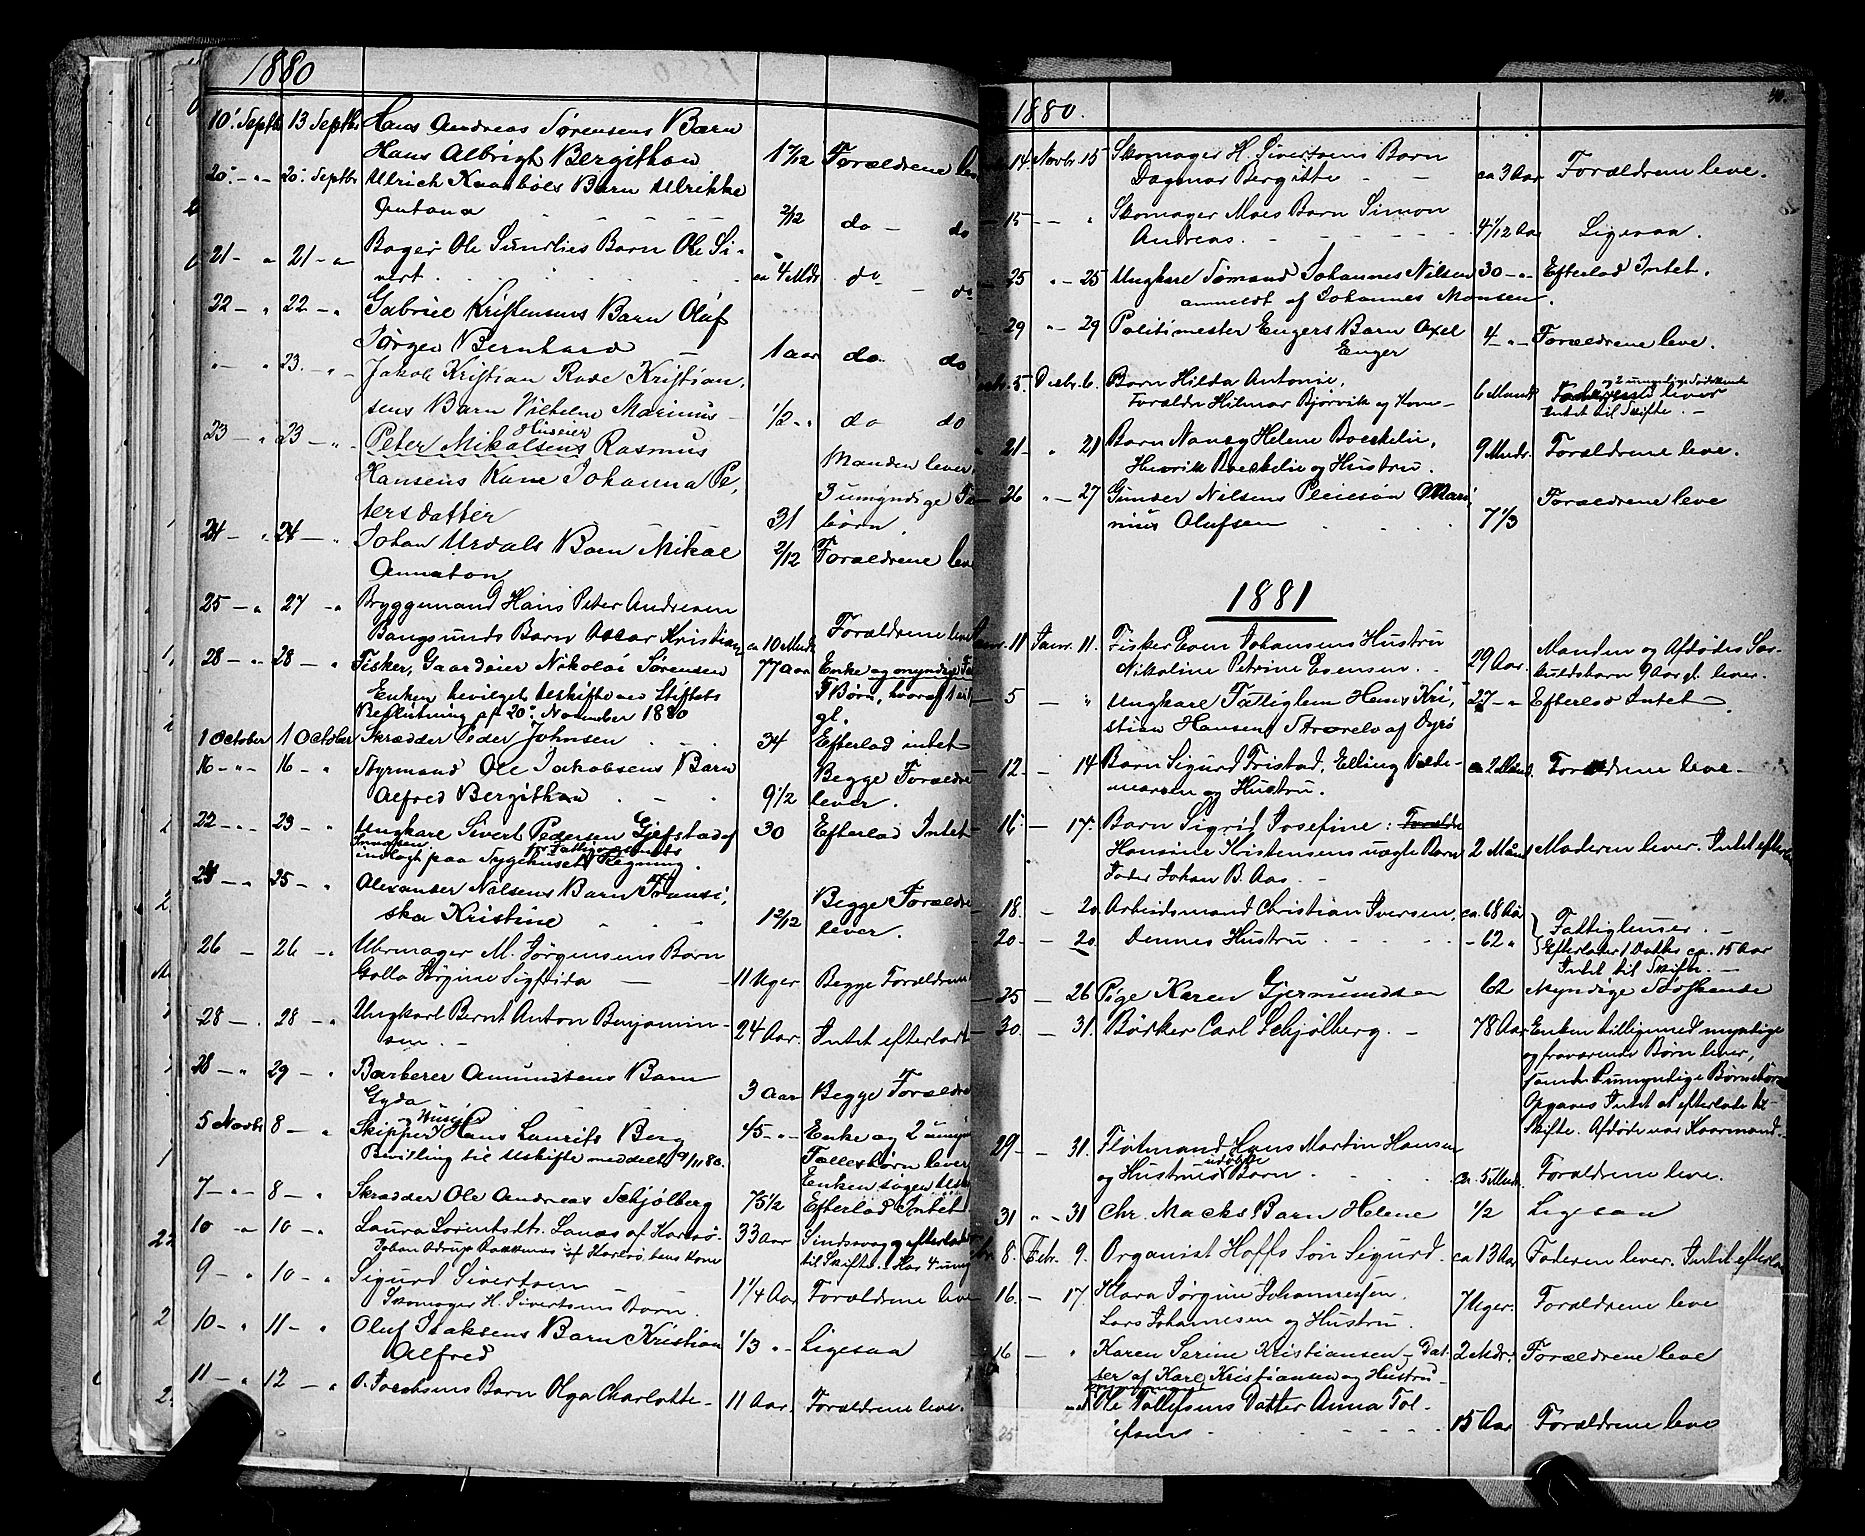 1880
10' Septb 13 Septbr Hans Andreas Sørensens Barn
Hans Albrigt Bergithon 1 7/12 Forældrene
20' - " - 20' Septbr Ulrich Kaarbøls Barn Ulrikke
Antona 2/12 do - do
21 - " 21 - " Bager Ole Sundlies Barn Ole Si-
vert ca 4 Mdr do - do
22 - " 22 - " Gabriel Kristensens Barn Oluf
Jørgen Bernhard 1 aar do do
" - 23 - " - Jakob Kristian Rode Kristian,
sens Barn Vilhelm Marinus - 1/2 - " do do
23 - " 23 - " Peter Mikalsens Huseier Rasmus
Hansens Kone Johanna Pe, Manden lever
tersdatter 31 3 umyndige
børn
24 - " 24 - " Johan Urdals Barn Mikal 2/12 Forældrene
Annaton
25 - " 27 - " Bryggemand Hans Peter Andresen
Bangsunds Barn Oscar Kristian ca 10 Mndr Forældrene
28 - " 28 - " Fisker, Gaardeier Nikolai Sørensen 77 Aar Enke og myndige
Enken bevilget Uskifte ved Stiftets 7 Børn, hvoraf 1
Beslutning af 20' November 1880 gl.
1 October 1 October Skrædder Peder Johnsen 34 Efterlod intet
16 - " - 16 - " Styrmand Ole Jakobsens Barn Begge Forældre
Alfred Bergithon 9 1/2 lever.
22 - " 23 - " Ungkarl Sivert Pedersen Gjefstad af 30 Efterlod Intet
indlagt paa Sygehuset Regning.
24 - " 25 - " Alexander Nilsens Barn Fransi, Begge Forældre
ska Kristine 1 2/12 lever.
26 - 26 - " Uhrmager M. Jørgensens Barn
Golla Jørgine Sigfrida - 11 Uger Begge Forældrene
28 - 28 - " Ungkarl Bernt Anton Benjamin-
sen. - 24 Aar. Intet efterladt
28 - " 29 - " Barberer Amundsens Barn
Gyda 3 Aar Begge Forældre
5 Novbr 8 - " Skipper og Huseier Hans Laurits Berg 45 - " - Enke og 2
Bevilling til Uskifte meddelt 9/11 80. Fællesbørn lever
Enken
7 - " - 8 - " Skrædder Ole Andreas Schjølberg 75 1/2 Efterlod Intet
10 " 10 - " Laura Lorintsdtr. Lanæs af Karlsø. 33 Aar
af Karlsø hans Kone til Skifte. Har 4
9 - " 10 - " Sigurd Sivertsen
Skomager H. Sivertsens Barn. 1 1/4 Aar Forældrene leve
10 - " 11 - " Oluf Isaksens Barn Kristian 1/3 " - Ligesaa
Alfred
11 - " 12 - " O. Jacobsens Barn Olga Charlotte - 11 Aar. Forældrene leve.
1880. 40.
14. Novbr. 15 Skomager H. Sivertsens Barn
Dagmar Bergitte - - ca 3 Aar Forældrene leve.
15 - - " Skomager Moes Barn Simon
Andreas. 4 1/12 Aar Ligesaa.
25 " - 25 Ungkarl Sømand Johannes Nilsen 30 - " - Efterlod Intet.
anmeldt af Johannes Monsen.
29 " - 29 Politimester Engers Barn Axel
Enger 4 - " - Forældrene leve.
5. Decbr. 6. Barn Hilda Antonie,
Forældre Hilmar Bjørvik og Kone - 6 Maand og 2 umyndige Sødskende lever
Intet til Skifte. -
21 - " 21 Barn Nancy Helene Boeckelie, 9 Mndr. Forældrene leve.
Henrik Boeckelie og Hustru.
26 " - 27 Gunder Nilsens Pleiesøn Mari Forældrene leve
nius Olufsen 7 1/3
1881
Janr. 11 Janr. 11. Fisker Even Johansens Hustru Manden og Afdødes
Nikoline Petrine Evensen. 29 Aar. 9 Aar gl. lever.
5 - " Ungkarl Fattiglem Hans Kri, 27 - " Efterlod Intet
stian Hansen Stvorelv af Dyrø
12 - - 14 Barn Sigurd Fristad. Elling Valde- ca 2 Mdr. Forældrene leve -
marsen og Hustru.
16 - 17. Barn Sigrid Josefine:
Hansine Kristensens uægte Barn 2 Mdr Moderen lever. Intet
Fader Johan B. Aas. -
18. - 20 Arbeidsmand Christian Iversen, ca. 68 Aar
20 - - 20. Dennes Hustru - 62 " Fattiglemmer. -
Efterlader 1 Datter ca. 15 Aar
Intet til Skifte. -
25 - 26 Pige Karen Gjermundsen 62 Myndige Sødskende
30. - 31. Bødker Carl Schjølberg. - 78 Aar Enken tilligemed myndige
og fraværende Børn lever,
samt umyndige Børnebørn
Opgaves Intet at efterlade til
Skifte. Afdøde var Kaarmand.
29 - - 31. Fløtmand Hans Martin Hansen
og Hustrues udøbte Barn. ca. 5 Mdr. Forældrene leve.
31 " - 31 Chr. Macks Barn Helene 1/2 Ligesaa
8. Febr. 9. Organist Hoffs Søn Sigurd. ca 13 Aar Faderen lever. Intet
16. - 17. Klara Jørgine Johannessen.
Lars Johannesen og Hustru. 7 Uger. Forældrene leve
16 - " Karen Serine Kristiansen - Dat- 2 Mdr. Forældrene leve
ter af Karl Kristiansen og Hustru -
Ole Tollefsens Datter Anna Tol-
lefsens 15 Aar Forældrene leve